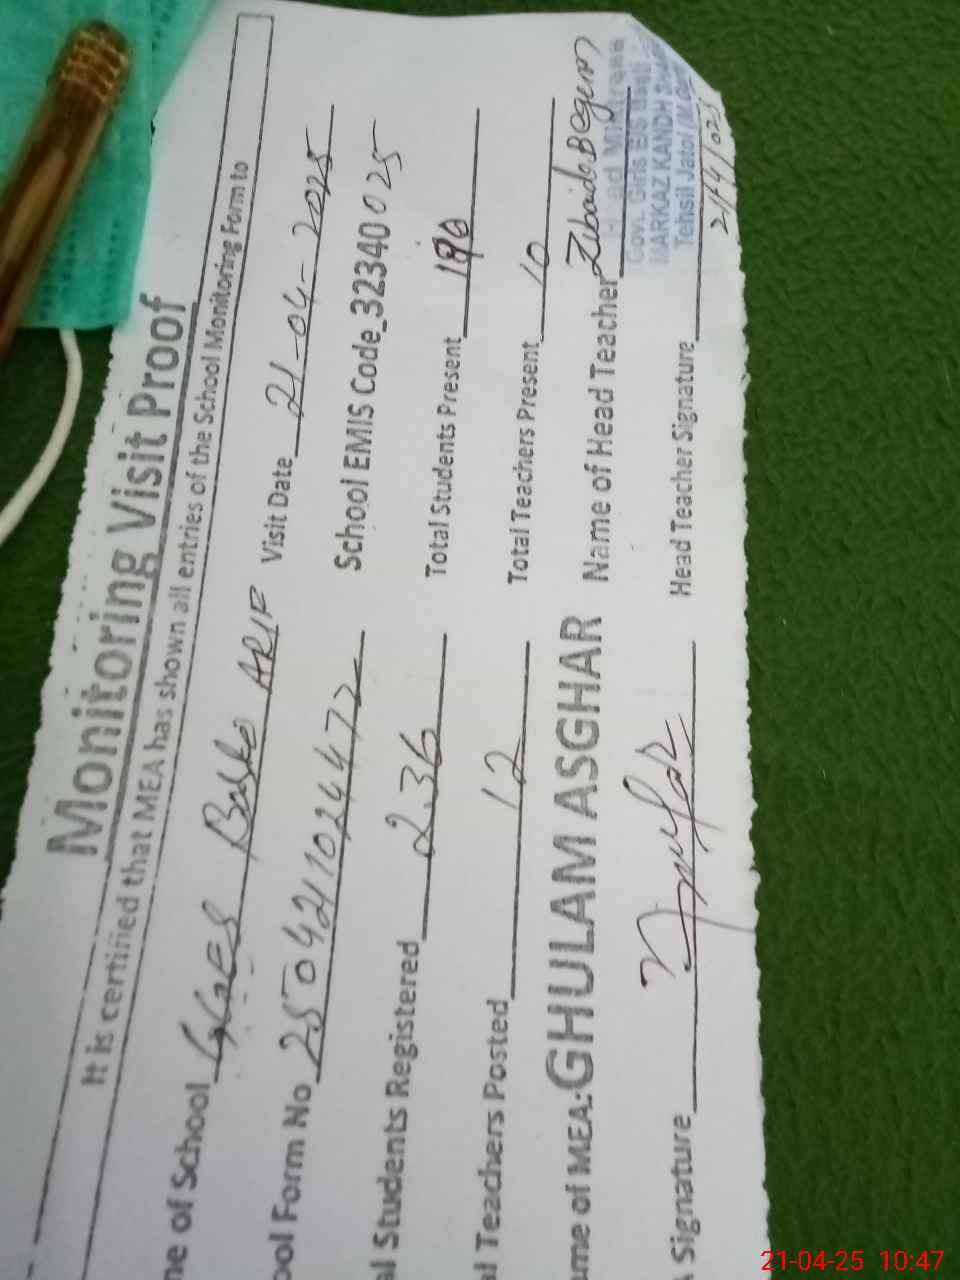 Monitoring Visit Proof
It is certified that MEA has shown all entries of the School Monitoring Form to
me of School GGES Basti ARIF Visit Date 21-04-2025
ool Form No 25042110244 72 School EMIS Code 32340025
al Students Registered 236 Total Students Present 190
al Teachers Posted 12 Total Teachers Present 10
ame of MEA: GHULAM ASGHAR Name of Head Teacher Zubaida Begum
Signature Head Teacher Signature
Head
Govt. Girls E/S
MARKAZ KANDH
Tehsil Jatoi
21-04-25 10:47